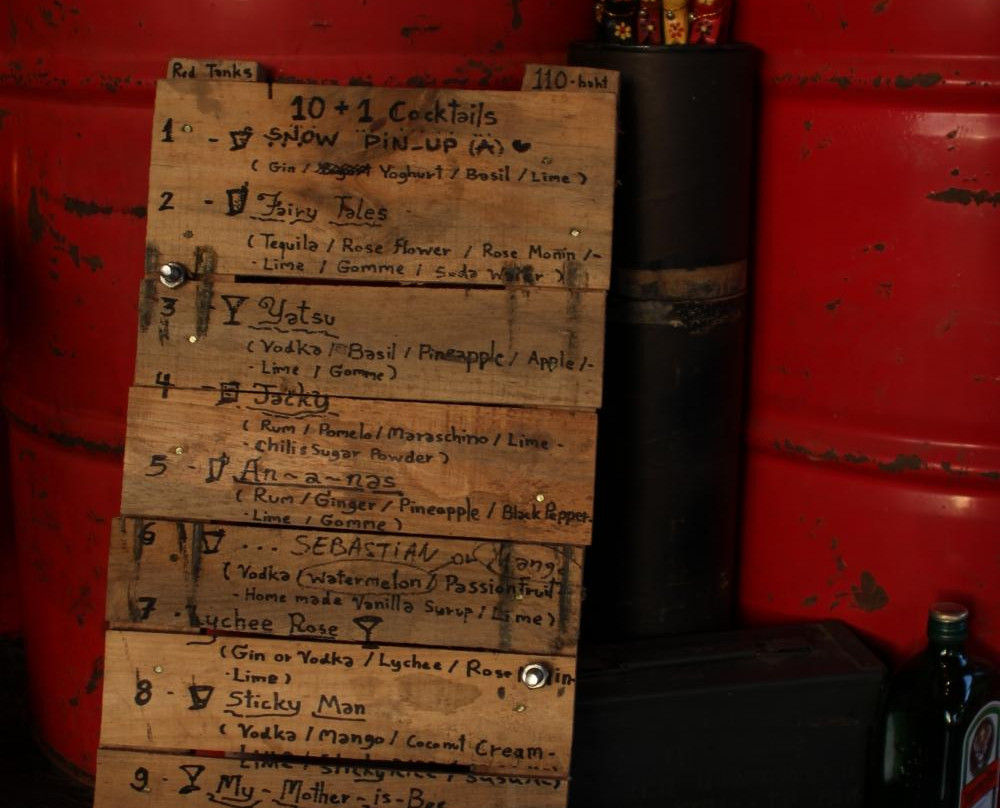 Red Tanks
110.baht
10 + 1 Cocktails
1 - SNOW PiN-UP (A) ♥
( Gin / Yoghurt / Basil / Lime )
2 - Fairy Tales
( Tequila / Rose flower / Rose Monin /-
- Lime / Gomme / Soda Water )
3 Yatsu
( Vodka / Basil / Pineapple / Apple /-
- Lime / Gomme )
4 - Jacky
( Rum / Pomelo / Maraschino / Lime -
- Chili & Sugar Powder )
5 - An-a-nas
( Rum / Ginger / Pineapple / Black Pepper-
- Lime / Gomme )
6 ... SEBASTiAN or Mango
( Vodka / Watermelon / Passion Fruit -
- Home made Vanilla Surup / Lime )
7 - Lychee Rose
( Gin or Vodka / Lychee / Rose
- Lime )
8 - Sticky Man
( Vodka / Mango / Coconut Cream -
Lime / Sticky Rice /
9 - My - Mother - is - Bee